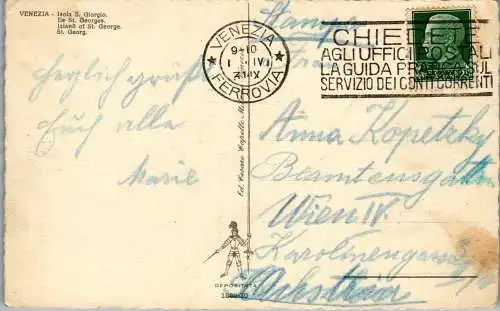 VENEZIA - Isola S. Giorgio.
Ile St. Georges.
Island of St. George.
St. Georg.
VENEZIA
9-10
1 IV
XIX
FERROVIA
CHIEDETE
AGLI UFFICI POSTALI
LA GUIDA PRATICA SUL
SERVIZIO DEI CONTI CORRENTI
herzlich grüßt
Euch alle
Marie
Frau
Anna Kopetzky
Beamtensgattin
Wien IV.
Karolinengasse
Ed. Cesare Capello
DEPOSITATA